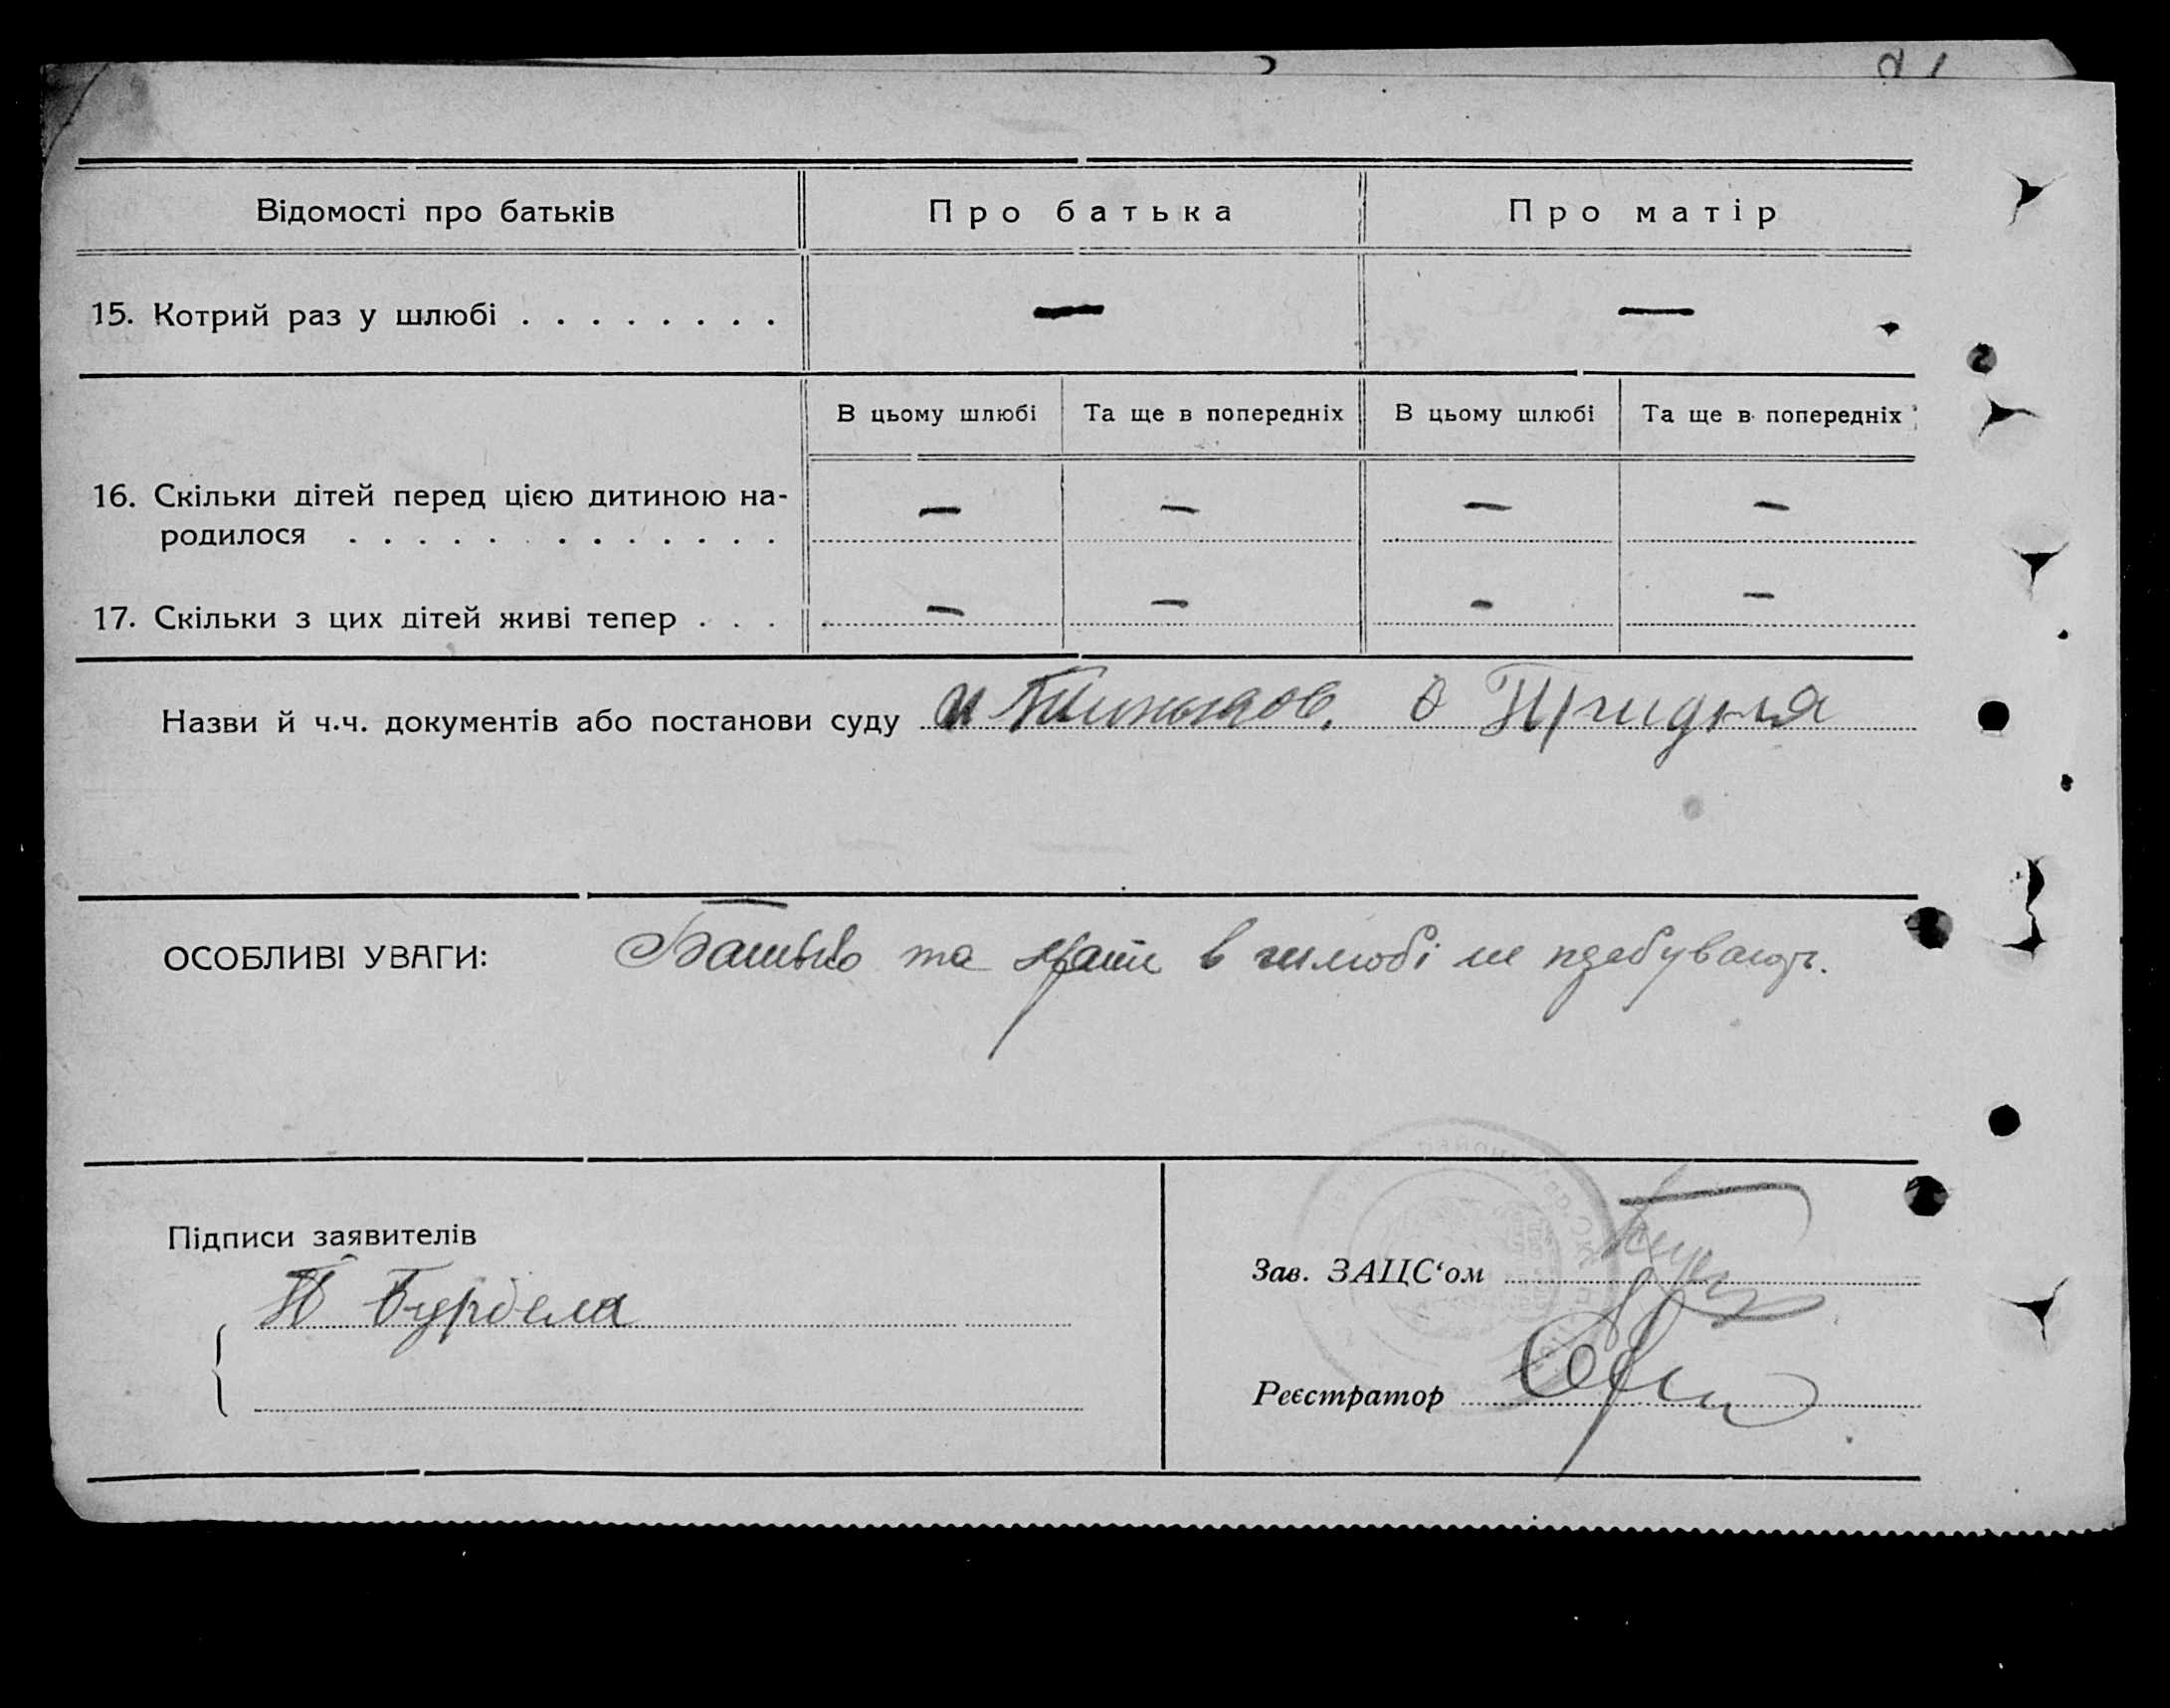 Відомості про батьків
Про батька
Про матір
15. Котрий раз у шлюбі . . . . . . . .
—
—
В цьому шлюбі
Та ще в попередніх
В цьому шлюбі
Та ще в попередніх
16. Скільки дітей перед цією дитиною на-
родилося . . . . . . . . . . . . .
— — — —
17. Скільки з цих дітей живі тепер . . .
— — — —
Назви й ч.ч. документів або постанови суду
ОСОБЛИВІ УВАГИ: Батько та мати в шлюбі не
Підписи заявителів
Зав. ЗАЦС‘ом
Реєстратор